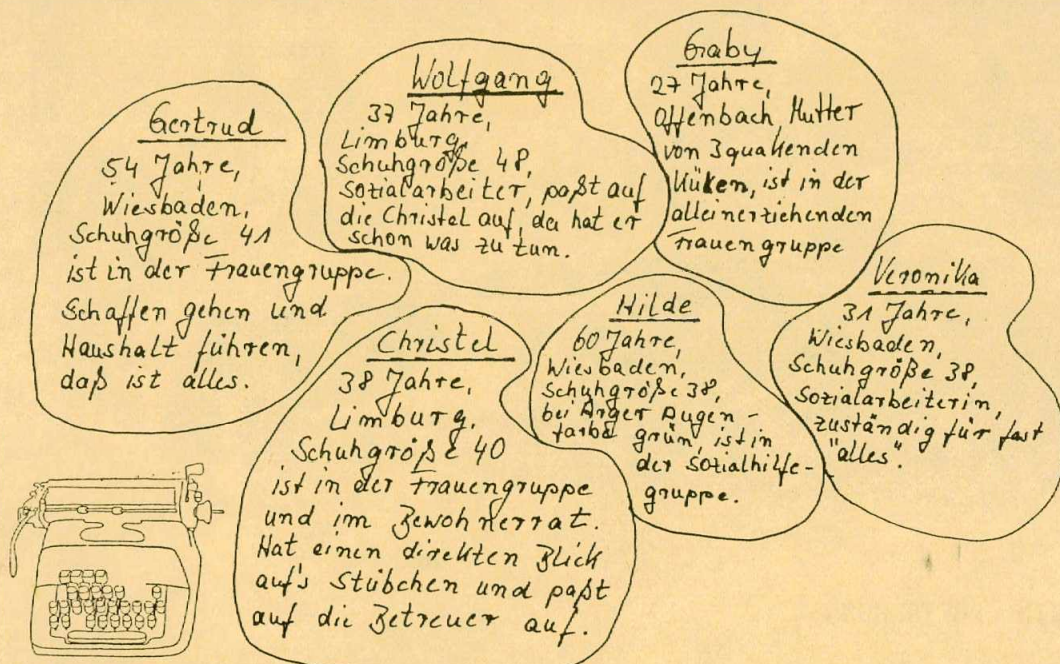 Gertrud
54 Jahre,
Wiesbaden,
Schuhgröße 41
ist in der Frauengruppe.
Schaffen gehen und
Haushalt führen,
daß ist alles.
Wolfgang
37 Jahre,
Limburg,
Schuhgröße 48,
Sozialarbeiter, paßt auf
die Christel auf, da hat er
schon was zu tun.
Gaby
27 Jahre,
Offenbach, Mutter
von 3 quakenden
Küken, ist in der
alleinerziehenden
Frauengruppe
Christel
38 Jahre,
Limburg,
Schuhgröße 40
ist in der Frauengruppe
und im Bewohnerrat.
Hat einen direkten Blick
auf's Stübchen und paßt
auf die Betreuer auf.
Hilde
60 Jahre,
Wiesbaden,
Schuhgröße 38,
bei Ärger Augen-
farbe grün, ist in
der Sozialhilfe-
gruppe.
Veronika
31 Jahre,
Wiesbaden,
Schuhgröße 38,
Sozialarbeiterin,
zuständig für fast
"alles".